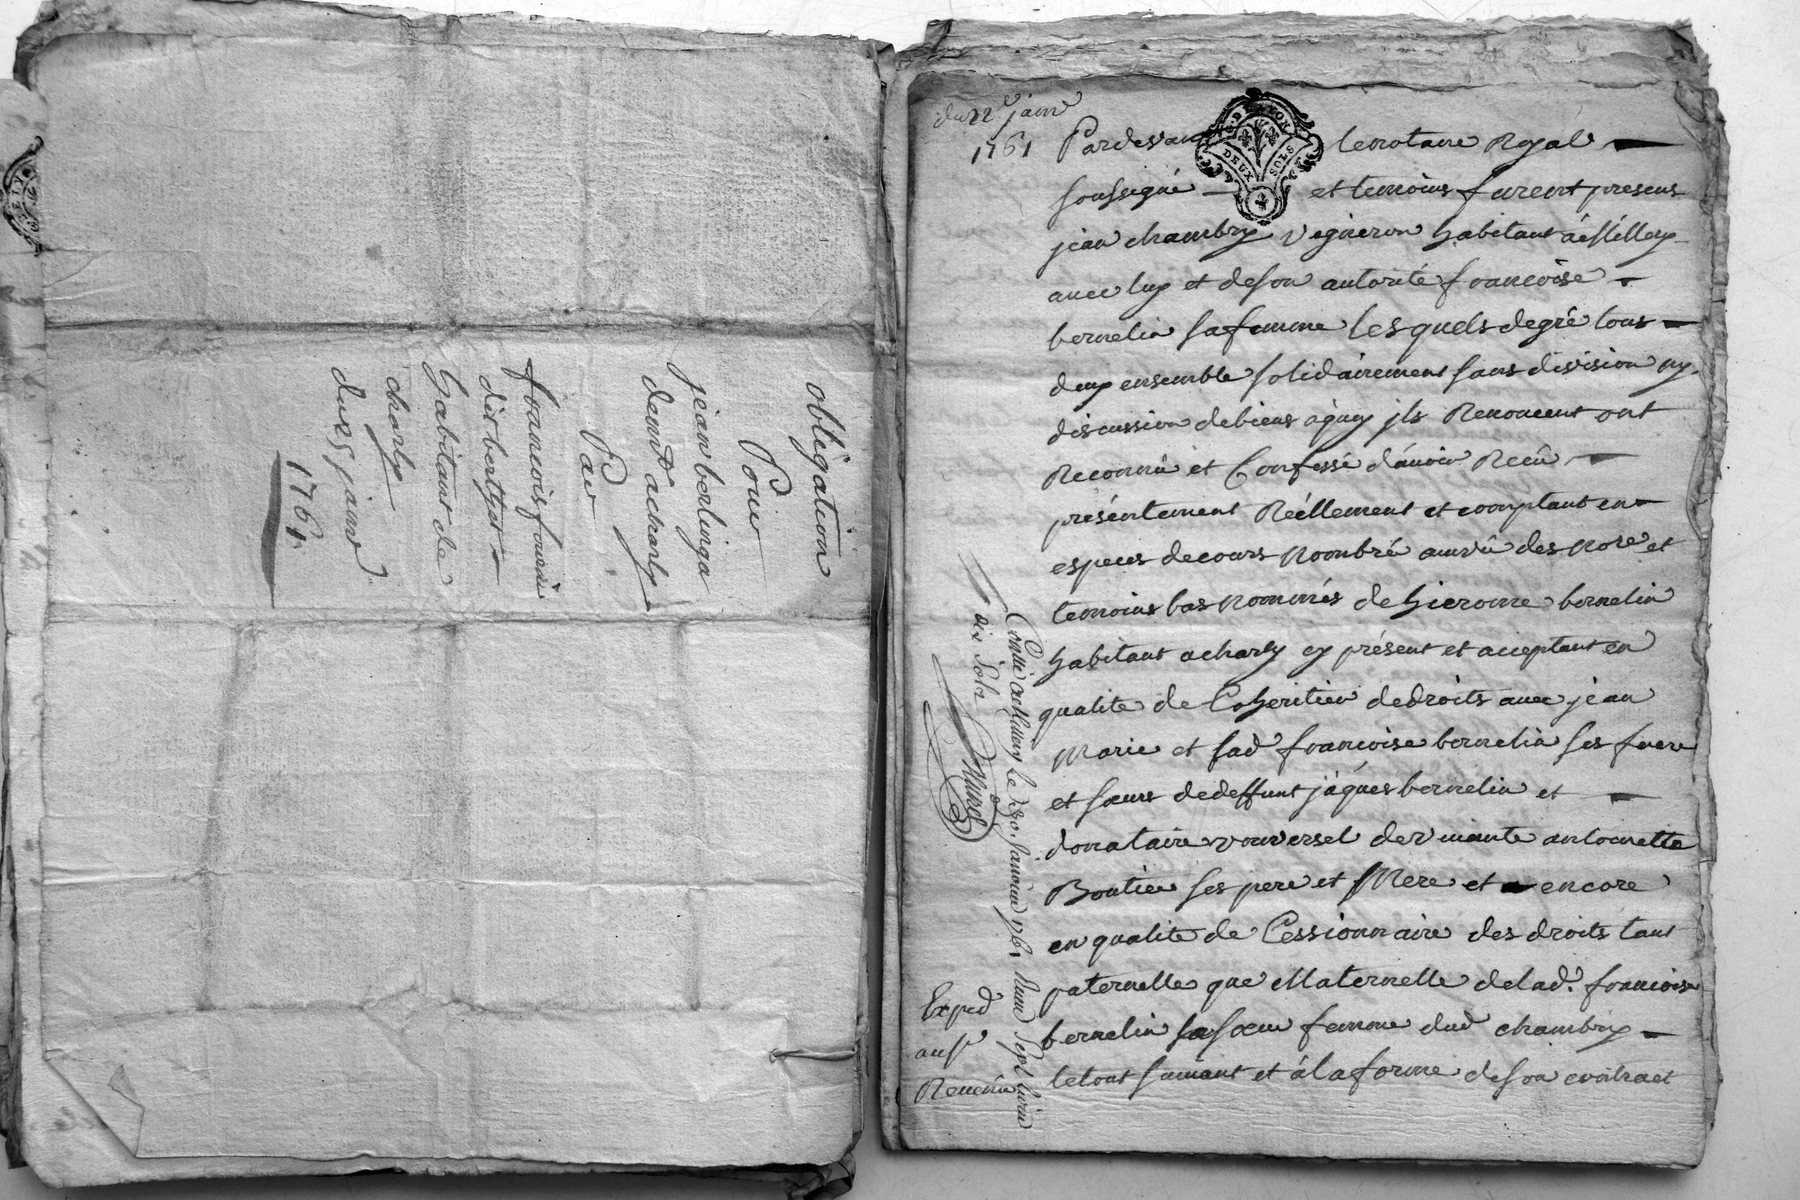 obligation
Pour
jean berlinga
demt a charly
Par
francois fourni
dit berthet
habitant de
charly
du 25 janvr
1761
du 22e janvr
1761
G. DE LYON
DEUX SOLS
Pardevant le notaire Royal
soussigné et temoins furent presens
jean chambry vigneron habitant à Millery
avec luy et de son autorité francoise
bernelin sa femme lesquels de gré tous
deux ensemble solidairement sans division ny
discussion de biens a quoy ils Renoncent ont
Reconnu et Confessé d'avoir Recû
présentement Réellement et comptant en
especes de cours nombré au vû des nore et
temoins bas nommés de hierome bernelin
habitant a charly cy présent et acceptant en
qualite de Coheritier de droits avec jean
Marie et lad francoise bernelin ses frere
et sœurs de deffunt jâques bernelin et
donataire vniversel de vivante antoinette
Boutier ses pere et Mere et encore
en qualite de Cessionnaire des droits tant
paternelle que Maternelle de lad. francoise
bernelin sa sœur femme dud chambry
le tout suivant et à la forme de son contract
Conllé a Millery le 30. Janvier 1761 Reçu Sept livres
dix sols
Exped
au sr